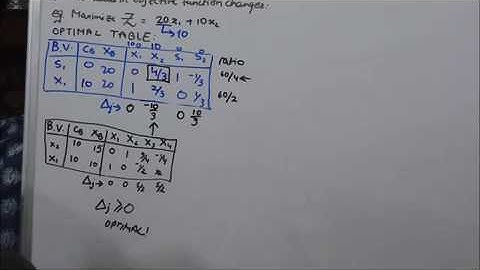 objective function changes:
eg Maximize Z = 20x₁ + 10x₂
↳10
OPTIMAL TABLE:
10 10 0 0
B.V. CB XB X₁ X₂ S₁ S₂ ratio
S₁ 0 20 0 4/3 1 -1/3 60/4 ←
X₁ 10 20 1 2/3 0 1/3 60/2
Δj → 0 -10/3 0 10/3
↑
B.V. CB XB X₁ X₂ X₃ X₄
X₂ 10 15 0 1 3/4 -1/4
X₁ 10 10 1 0 -1/2
Δj → 0 0 5/2 5/2
Δj ≥ 0
OPTIMAL!